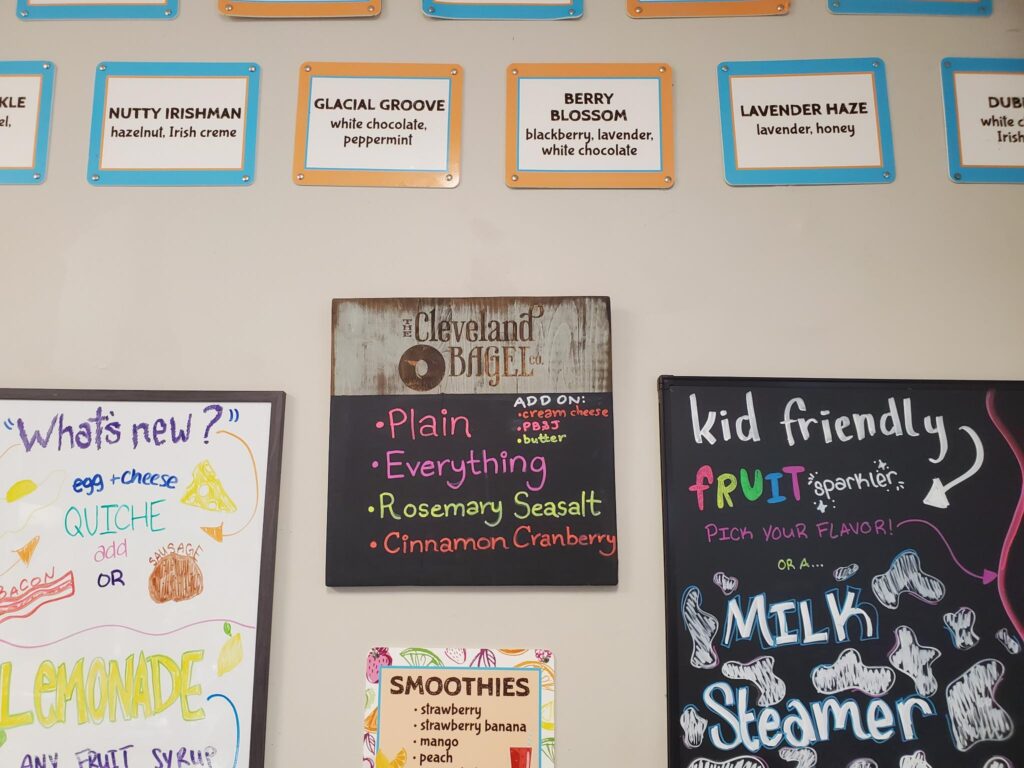 NUTTY IRISHMAN
hazelnut, Irish creme
GLACIAL GROOVE
white chocolate,
peppermint
BERRY
BLOSSOM
blackberry, lavender,
white chocolate
LAVENDER HAZE
lavender, honey
white
"What's new?"
egg + cheese
QUICHE
add
OR
BACON
SAUSAGE
LEMONADE
ANY FRUIT SYRUP
THE Cleveland
BAGEL CO.
ADD ON:
•cream cheese
•PB&J
•butter
•Plain
•Everything
•Rosemary Seasalt
•Cinnamon Cranberry
SMOOTHIES
• strawberry
• strawberry banana
• mango
• peach
kid friendly
FRUIT sparkler
PICK YOUR FLAVOR!
OR A...
MILK
Steamer